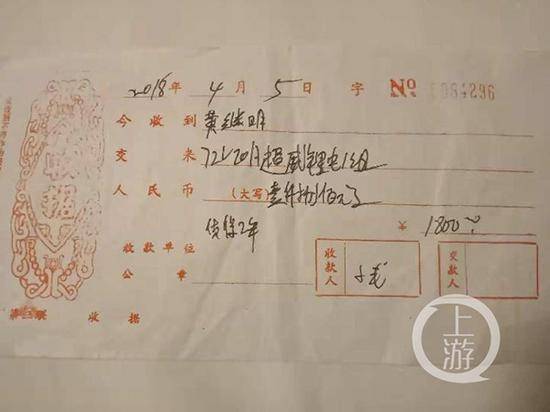 2018年 4月 5日 字 No 1084296
今收到 黄继明
交来 72V20A超威锂电1组
人民币 (大写) 壹仟捌佰元
质保2年 ¥ 1800
收款单位
公章
收款人
交款人
第三联 收据
收据
上游